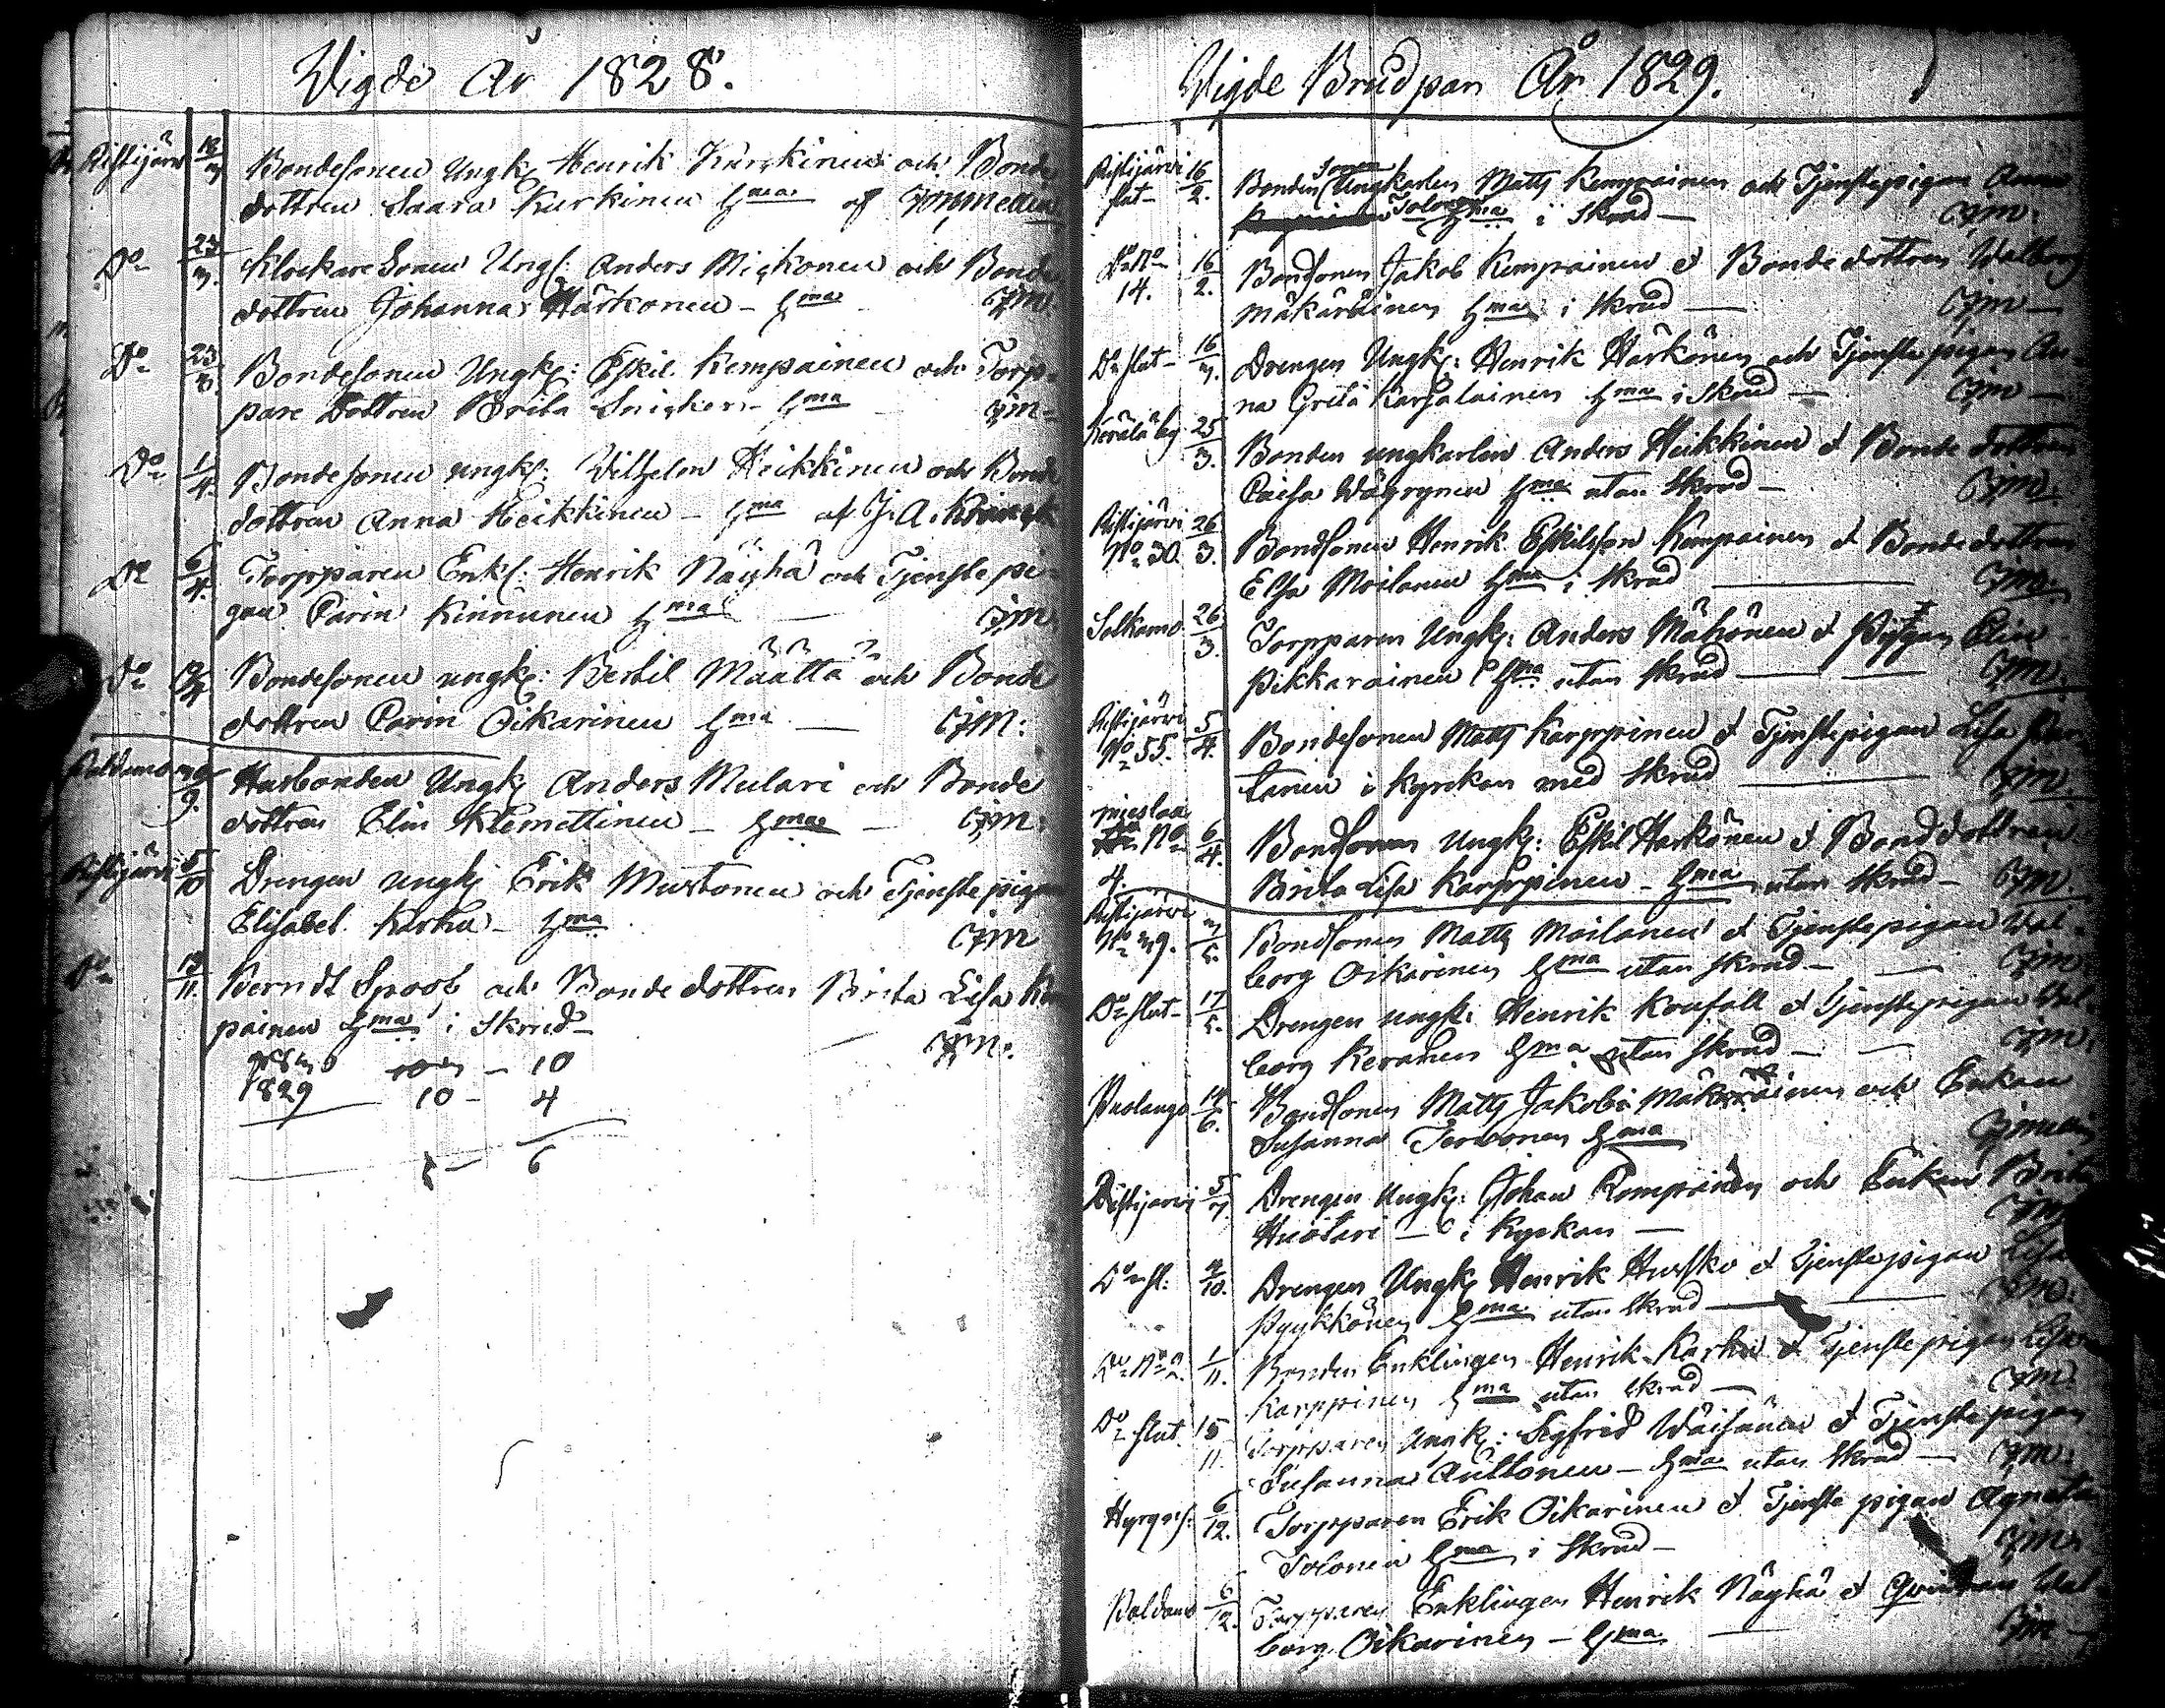 Vigde År 1828.
Ristijärvi 18/3 Bondesonen Ungk: Henrik Kurkinen och Bonde
dottren Saara Kurkinen hma af
Do 23/3. Klockare Sonen Ungk: Anders Miskonen och Bonde
dottren Johanna Härkönen - hma CJM.
Do 23/3. Bondesonen Ungk: Eskil Kempainen och Torp-
pare Dottren Brita Snicker - hma CJM-
Do 1/4. Bondesonen ungk: Vilhelm Heikkinen och Bonde
dottren Anna Heikkinen - hma af J. A.
Do 6/4. Torpparen Enkl: Henrik Näyhä och Tjenste pi-
gan Carin Kinnunen hma — CJM
Do Bondesonen ungk: Bertil Määttä och Bonde
dottren Carin Oikarinen hma — CJM:
Paldamo /9. Husbonden Ungk: Anders Mulari och Bonde
dottren Elin Klemettinen - hma - CJM:
Ristijärvi 5/10 Drengen ungk: Erik Mustonen och Tjenste pigan
Elisabet Karhu - hma CJM
Do /11. Berndt Spoof och Bonde dottren Brita Lisa Kem
painen hma i Skrud - CJM:
- 10
1829 10 - 4
- 6
Vigde Brudpar År 1829.
Ristijärvi 16/2. Bonden Sonen Ungkarlen Matts Kempainen och Tjenstepigan Anna
flut- Tolonen hma i Skrud — CJM:
Do No 14. 16/2. Bondsonen Jakob Kempainen & Bonde dottren Walborg
Mäkäräinen hma i skrud — CJM —
Do flut- 16/3. Drengen Ungk: Henrik Härkönen och Tjenste pigan An-
na Greta Karjalainen hma i skrud — CJM —
Kerälä by 25/3. Bonden ungkarlen Anders Heikkinen & Bonde dottren
Caisa Wäyrynen hma utan skrud — CJM.
Ristijärvi No 30. 26/3. Bondsonen Henrik Eskilsson Kempainen & Bonde dottren
Elsa Moilanen hma i skrud — CJM.
Sotkamo 26/3. Torpparen Ungk: Anders Mähönen & Pigan Elin
Pikkarainen hma utan skrud — CJM.
Ristijärvi No 55. 5/4. Bondesonen Matts Karppinen & Tjenstepigan Lisa Par
tanen i Kyrckan med skrud — CJM.
No 4. 6/4. Bondsonen Ungk: Eskil Harkönen & Bonddottren
Brita Lisa Karppinen - hma utan skrud - CJM.
Ristijärvi 3/5. Bondsonen Matts Moilanen & Tjenstepigan Wal-
borg Oikarinen hma utan skrud — CJM
Do flut- 17/5. Drengen ungk: Henrik & Tjenstepigan Wal-
borg Keränen hma utan skrud — CJM.
Puolango 14/6. Bondsonen Matts Jakobs: Mäkäräinen och Enkan
Susanna Tervonen hma
Ristijärvi 5/7. Drengen Ungk: Johan Kempainen och Enkan Brita
Huotari — i Kyrkan — CJM
Do fl: 4/10. Drengen Ungk: Henrik Hursko & Tjenstepigan Lisa
Pyykkönen hma utan skrud — CJM:
Do No 2. 1/11. Bonden Enklingen Henrik Karhu & Tjenstepigan Lisa
Karppinen hma utan skrud — CJM
Do flut. 15/11. Torpparen Ungk: Sigfrid Wäisänen & Tjenste pigan
Susanna Aultonen - hma utan skrud — CJM:
Hyryns: 6/12. Torpparen Erik Oikarinen & Tjenste pigan Agneta
Tolonen hma i Skrud - CJM
Paldamo 6/12. Torpparen Enklingen Henrik Näyhä & Qvinnan Wal-
borg Oikarinen - hma — CJM -